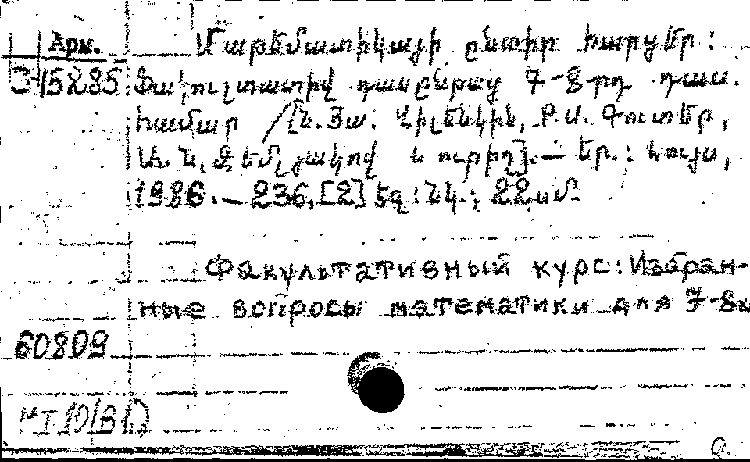 Арм.
Մաթեմատիկայի ընտիր հարցեր:
3-15285 Ֆակուլտատիվ դասընթաց 7-8-րդ դաս.
համար /Ն. Յա. Վիլենկին, Ռ.Ս. Գուտեր,
Ա. Ն. Զեմլյակով և ուրիշ].— Եր.: Լույս,
1986.— 236, [2] էջ: նկ.; 22 սմ.
Факультативный курс: Избран-
ные вопросы математики для 7-8к
60809